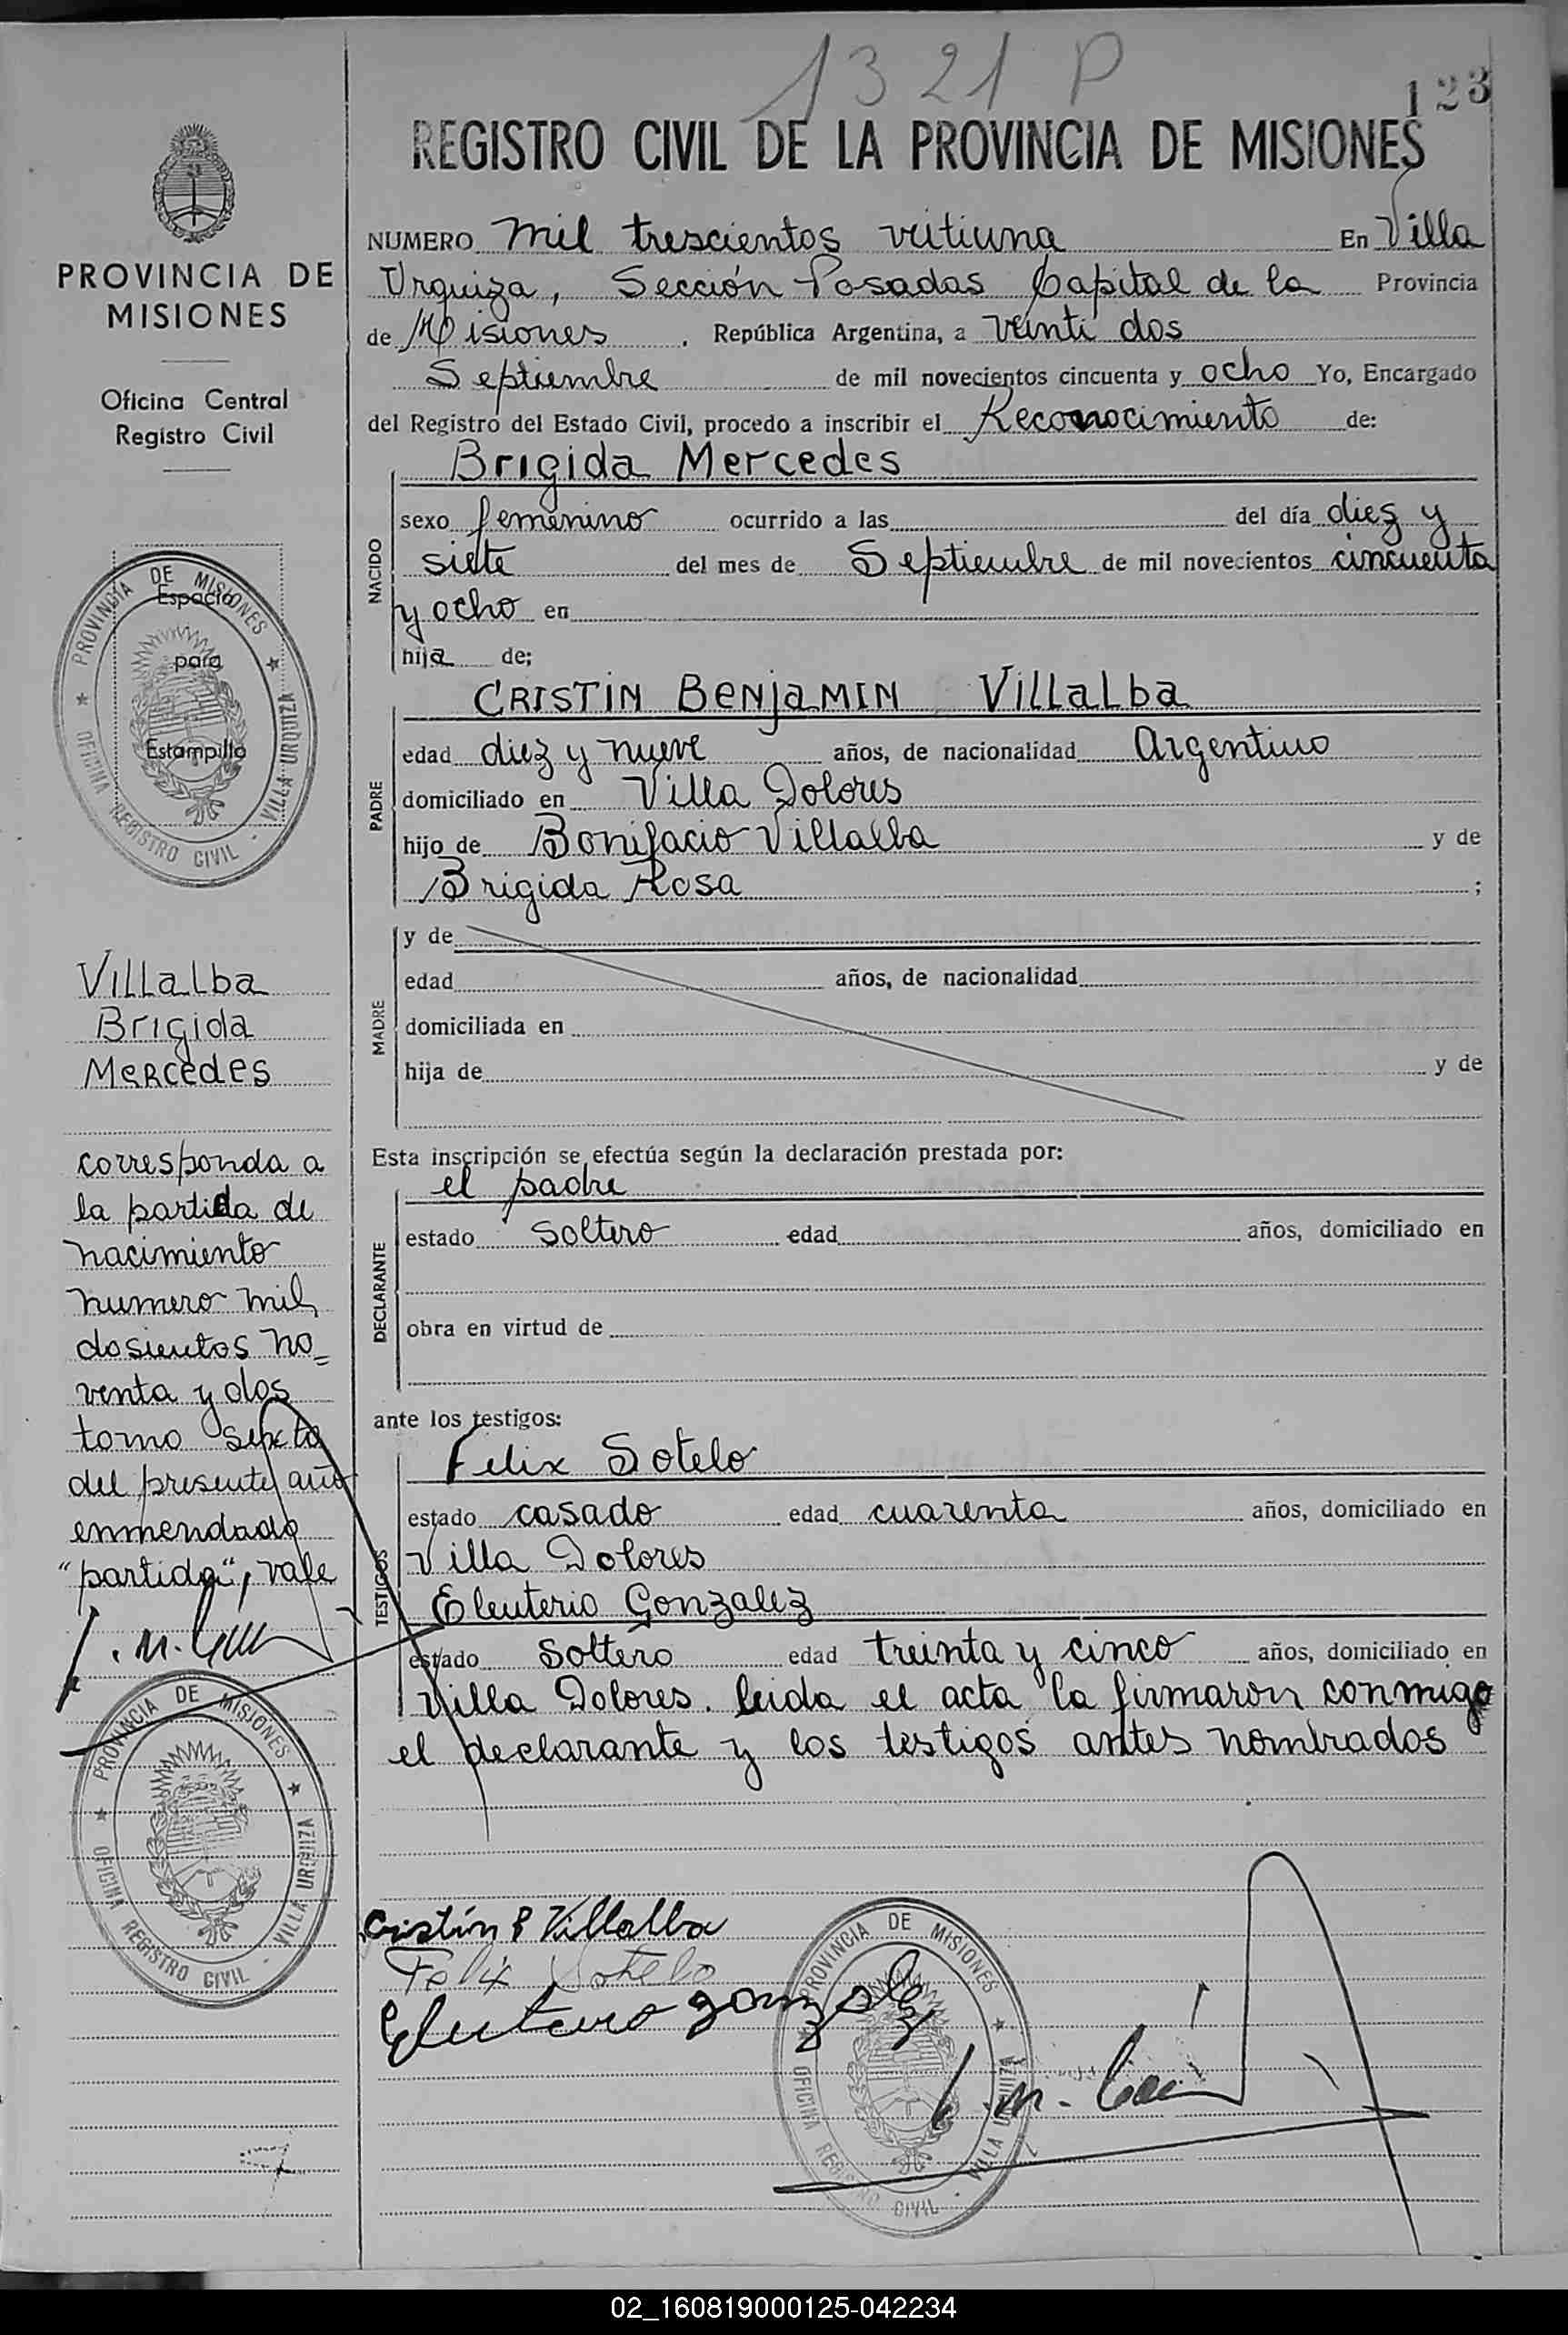 1321 P
123
REGISTRO CIVIL DE LA PROVINCIA DE MISIONES
PROVINCIA DE
MISIONES
Oficina Central
Registro Civil
PROVINCIA DE MISIONES
OFICINA REGISTRO CIVIL - VILLA URQUIZA
Espacio
para
Estampilla
Villalba
Brigida
Mercedes
corresponda a
la partida de
nacimiento
numero mil
dosientos no_
venta y dos
tomo sexto
del presente año
enmendado
"partida", vale
PROVINCIA DE MISIONES
OFICINA REGISTRO CIVIL - VILLA URQUIZA
NUMERO mil trescientos veitiuna En Villa
Urquiza, Sección Posadas Capital de la Provincia
de Misiones, República Argentina, a veinti dos
Septiembre de mil novecientos cincuenta y ocho Yo, Encargado
del Registro del Estado Civil, procedo a inscribir el Reconocimiento de:
NACIDO
Brigida Mercedes
sexo femenino ocurrido a las del día diez y
siete del mes de Septiembre de mil novecientos cincuenta
y ocho en
hija de;
PADRE
CRISTIN BENJAMIN VILLALBA
edad diez y nueve años, de nacionalidad Argentino
domiciliado en Villa Dolores
hijo de Bonifacio Villalba y de
Brigida Rosa ;
MADRE
y de
edad años, de nacionalidad
domiciliada en
hija de y de
Esta inscripción se efectúa según la declaración prestada por:
DECLARANTE
el padre
estado soltero edad años, domiciliado en
obra en virtud de
ante los testigos:
TESTIGOS
Felix Sotelo
estado casado edad cuarenta años, domiciliado en
Villa Dolores
Eleuterio Gonzalez
estado soltero edad treinta y cinco años, domiciliado en
Villa Dolores. leida el acta la firmaron conmigo
el declarante y los testigos antes nombrados
Cristín B Villalba
Felix Sotelo
Eleuterio Gonzalez
PROVINCIA DE MISIONES
OFICINA REGISTRO CIVIL - VILLA URQUIZA
02_160819000125-042234